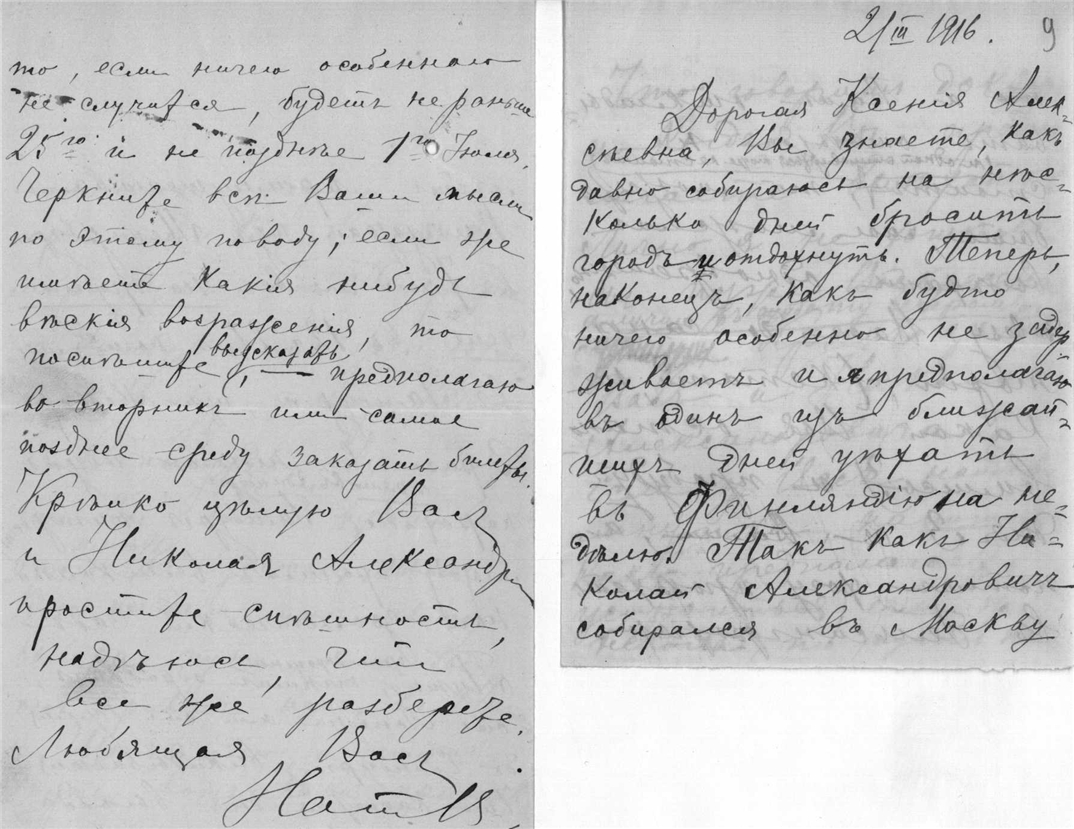 то, если ничего особеннаго
не случится, будетъ не раньше
25го и не позднѣе 1го Iюля.
Черкните всѣ Ваши мысли
по этому поводу; если же
имѣете какiя нибудь
вѣскiя возраженiя, то
поспѣшите высказать, предполагаю
во вторникъ или самое
позднее среду заказать билеты.
Крѣпко цѣлую Васъ
и Николая Александр.
простите спѣшность,
надѣюсь, что
все же разберете.
Любящая Васъ
Нат
21 III 1916. 9
Дорогая Ксенiя Алек-
сѣевна, Вы знаете, какъ
давно собираюсь на нѣс-
колько дней бросить
городъ и отдохнуть. Теперь,
наконецъ, какъ будто
ничего особенно не задер
живаетъ и я предполагаю
въ одинъ изъ ближай-
шихъ дней уѣхать
въ Финляндiю на не-
дѣлю. Такъ какъ Ни-
колай Александровичъ
собирался въ Москву